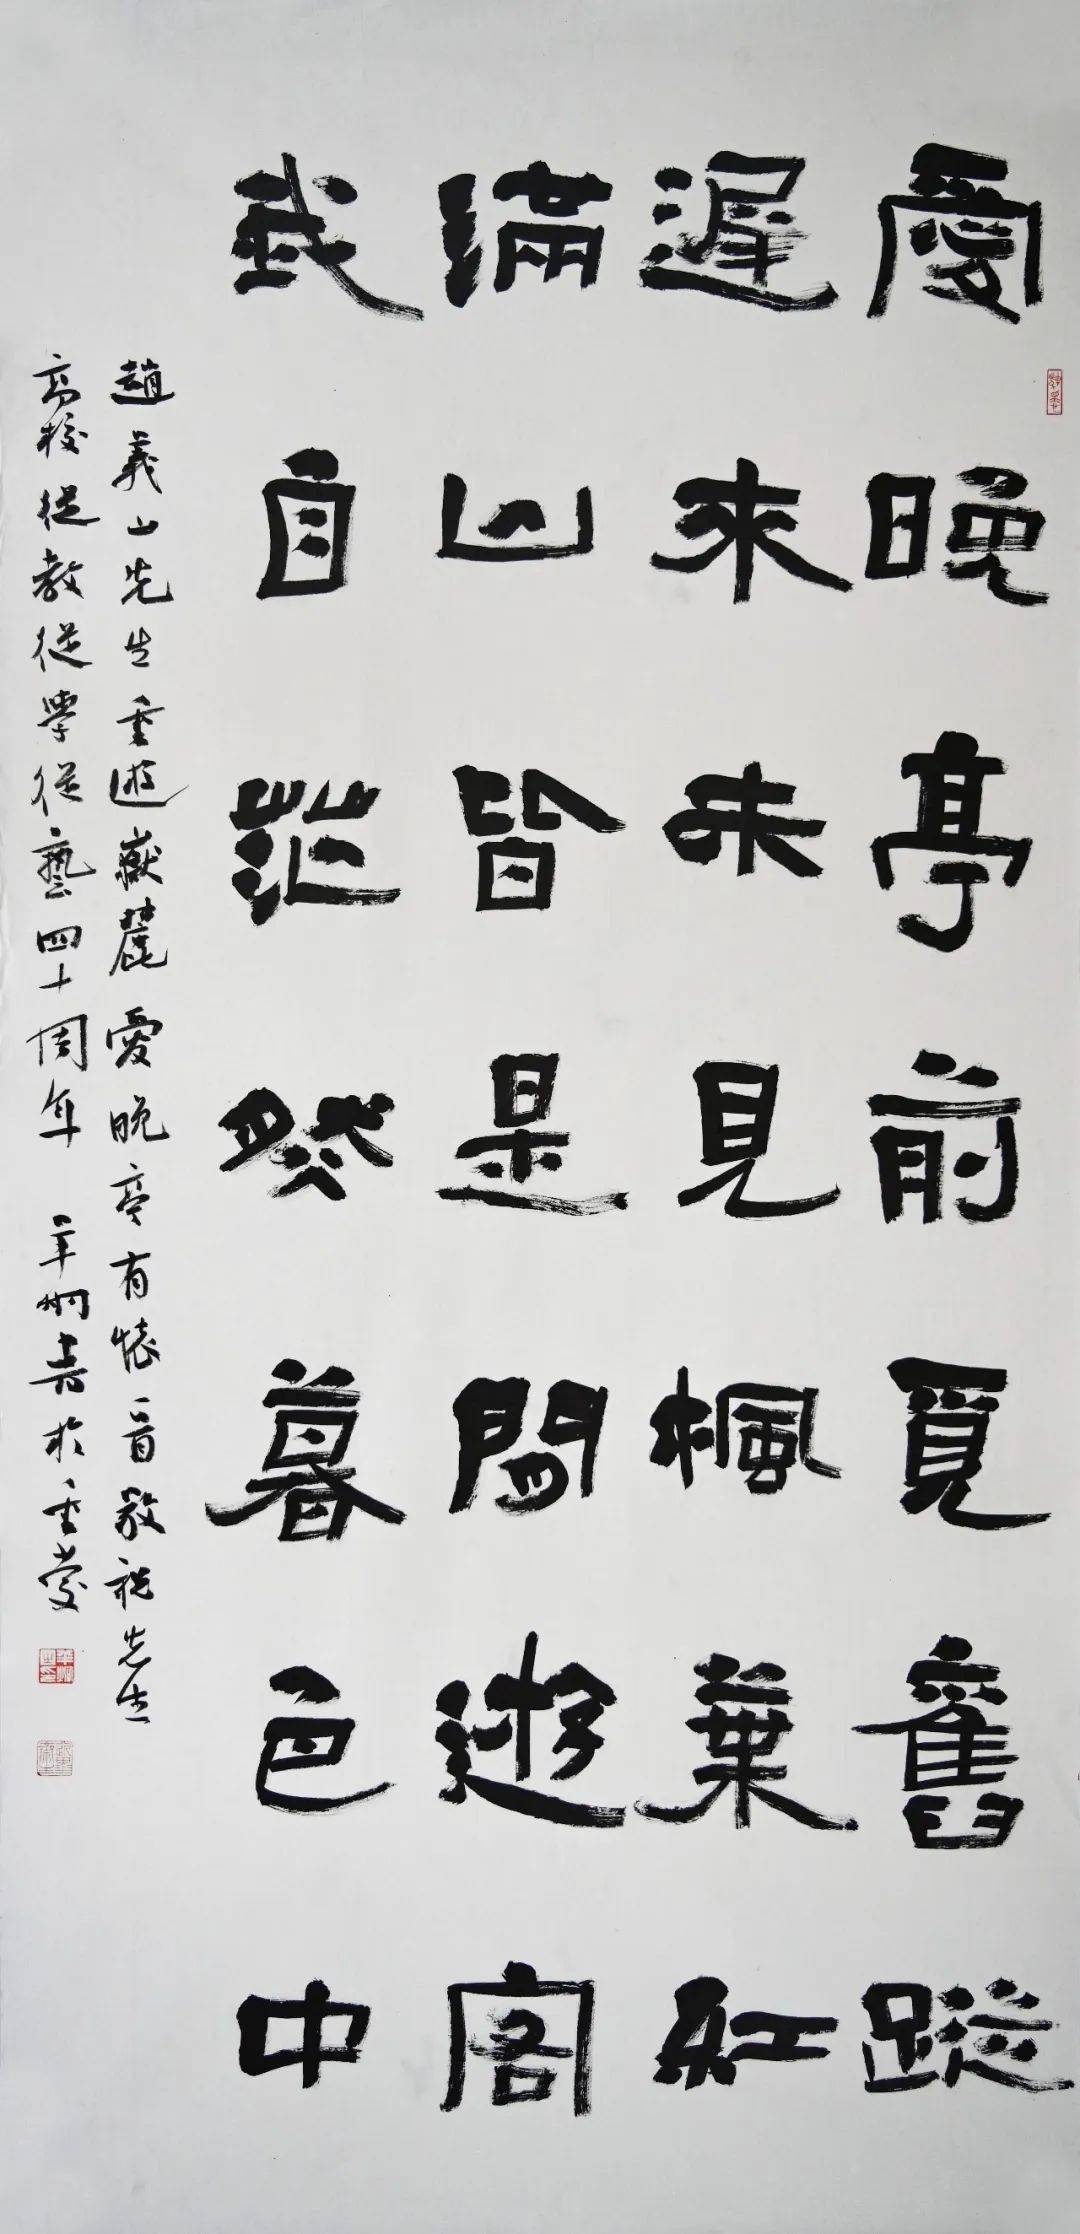 愛晚亭前覓舊蹤
遲來未見楓葉紅
滿山皆是閒遊客
我自茫然暮色中
趙義山先生重遊嶽麓愛晚亭有懷一首敬祝先生
高校從教從學從藝四十周年 炯書於重慶